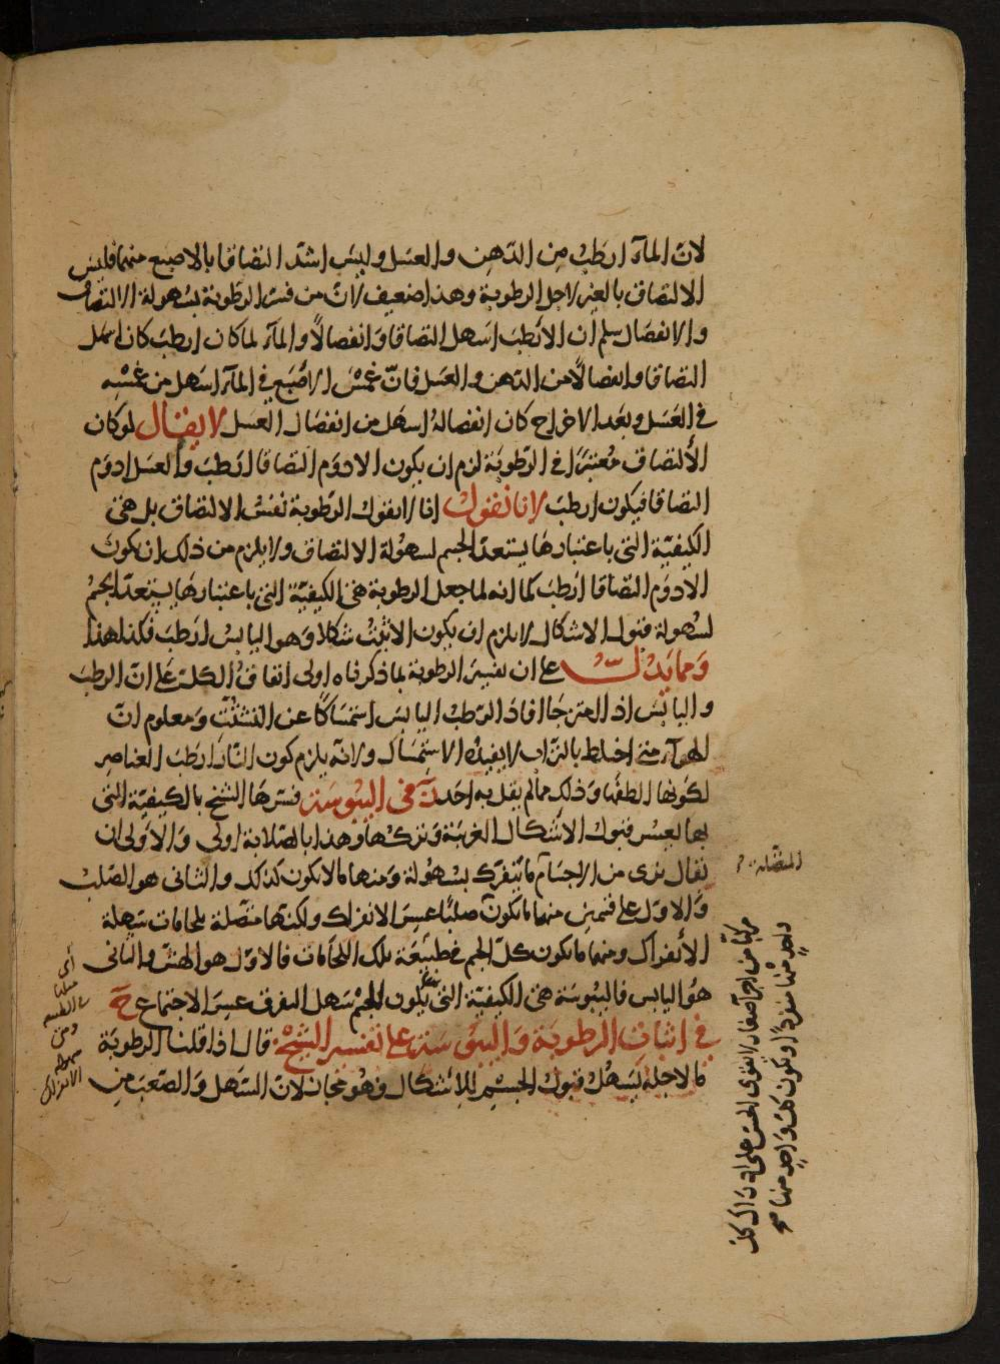 لان المآء ارطب من الدهن والعسل وليس اشد التصاقا بالاصبع منهما فليس
الالتصاق بالغير لاجل الرطوبة وهذا ضعيف لانّ من فسر الرطوبة بسهولة الالتصاق
والانفصال يسلم ان الارطب اسهل التصاقا وانفصالًا والمآء لما كان ارطب كان اسهل
التصاقا وانفصالًا من الدهن والعسل فانّ غمس الاصبع في المآء اسهل من غمسه
في العسل وبعد الاخراج كان انفصاله اسهل من انفصال العسل لا يقال لو كان
الألتصاق معتبرًا في الرطوبة لزم ان يكون الادوم التصاقا ارطب والعسل ادوم
التصاقا فيكون ارطب لانا نقول انا لا نقول الرطوبة نفس الالتصاق بل هي
الكيفيّة التي باعتبارها يستعدّ الجسم لسهولة الالتصاق ولا يلزم من ذلك ان يكون
الادوم التصاقا ارطب كما انه لما جعل الرطوبة هي الكيفيّة التي باعتبارها يستعدّ الجسم
لسهولة قبول الاشكال لا يلزم ان يكون الاثبت شكلا وهو اليابس ارطب فكذا هذا
ومما يدلّ على ان تفسير الرطوبة بما ذكرناه اولى اتفاق الكل على انّ الرطب
واليابس اذا امتزجا افاد الرطب اليابس استمساكًا عن التشتّت ومعلوم انّ
الهوآء متى اختلط بالتراب لا يفيده الاستمساك ولانّه يلزم كون النار ارطب العناصر
لكونها الطفها وذلك مما لم يقل به احد ت في اليبوسة فسّرها الشيخ بالكيفيّة التي
بها يعسر قبول الاشكال الغريبة وتركها وهذا بالصلابة اولى والأولى ان
يقال نرى من الاجسام ما يتفرّك بسهولة ومنها ما لا يكون كذلك والثانى هو الصّلب
والاوّل على قسمين منهما ما يكون صلبًا عسر الانفراك ولكنّها متصلة بلحامات سهلة
الأنفراك ومنهما ما يكون كلّ الجسم في طبيعة تلك اللحامات فالاوّل هو الهشّ والثانى
هو اليابس فاليبوسة هي الكيفيّة التي بها يكون الجسم سهل التفرق عسر الاجتماع ح
في اثبات الرطوبة واليبوسة على تفسير الشيخ قال اذا قلنا الرطوبة
ما لاجله يسهل قبول الجسم للاشكال وهو مجاز لانّ السهل والصعب من